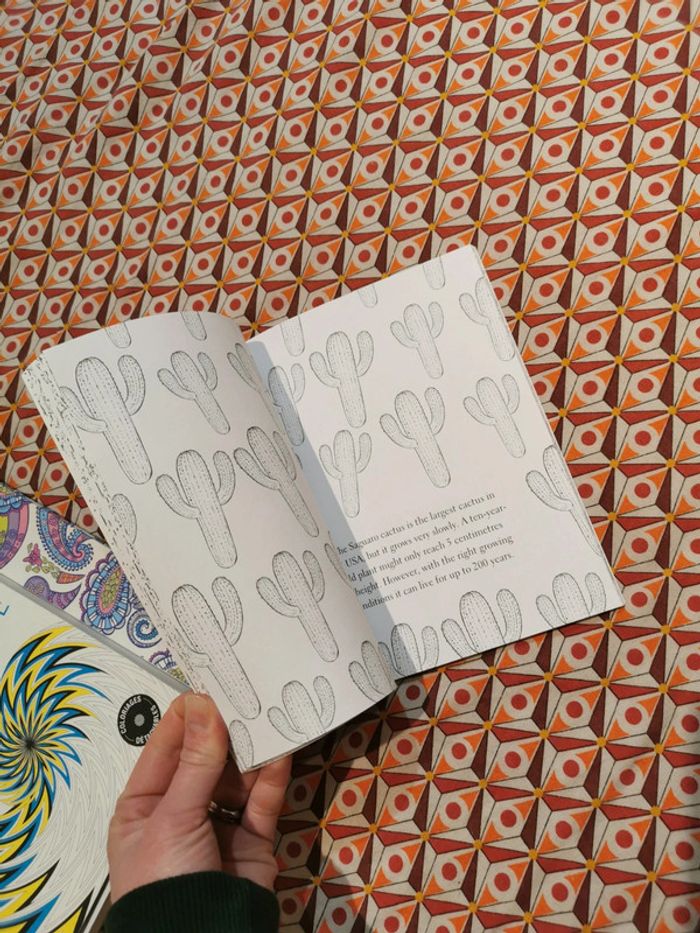 he Saguaro cactus is the largest cactus in
USA, but it grows very slowly. A ten-year-
ld plant might only reach 5 centimetres
height. However, with the right growing
nditions it can live for up to 200 years.
E
COLORIAGES